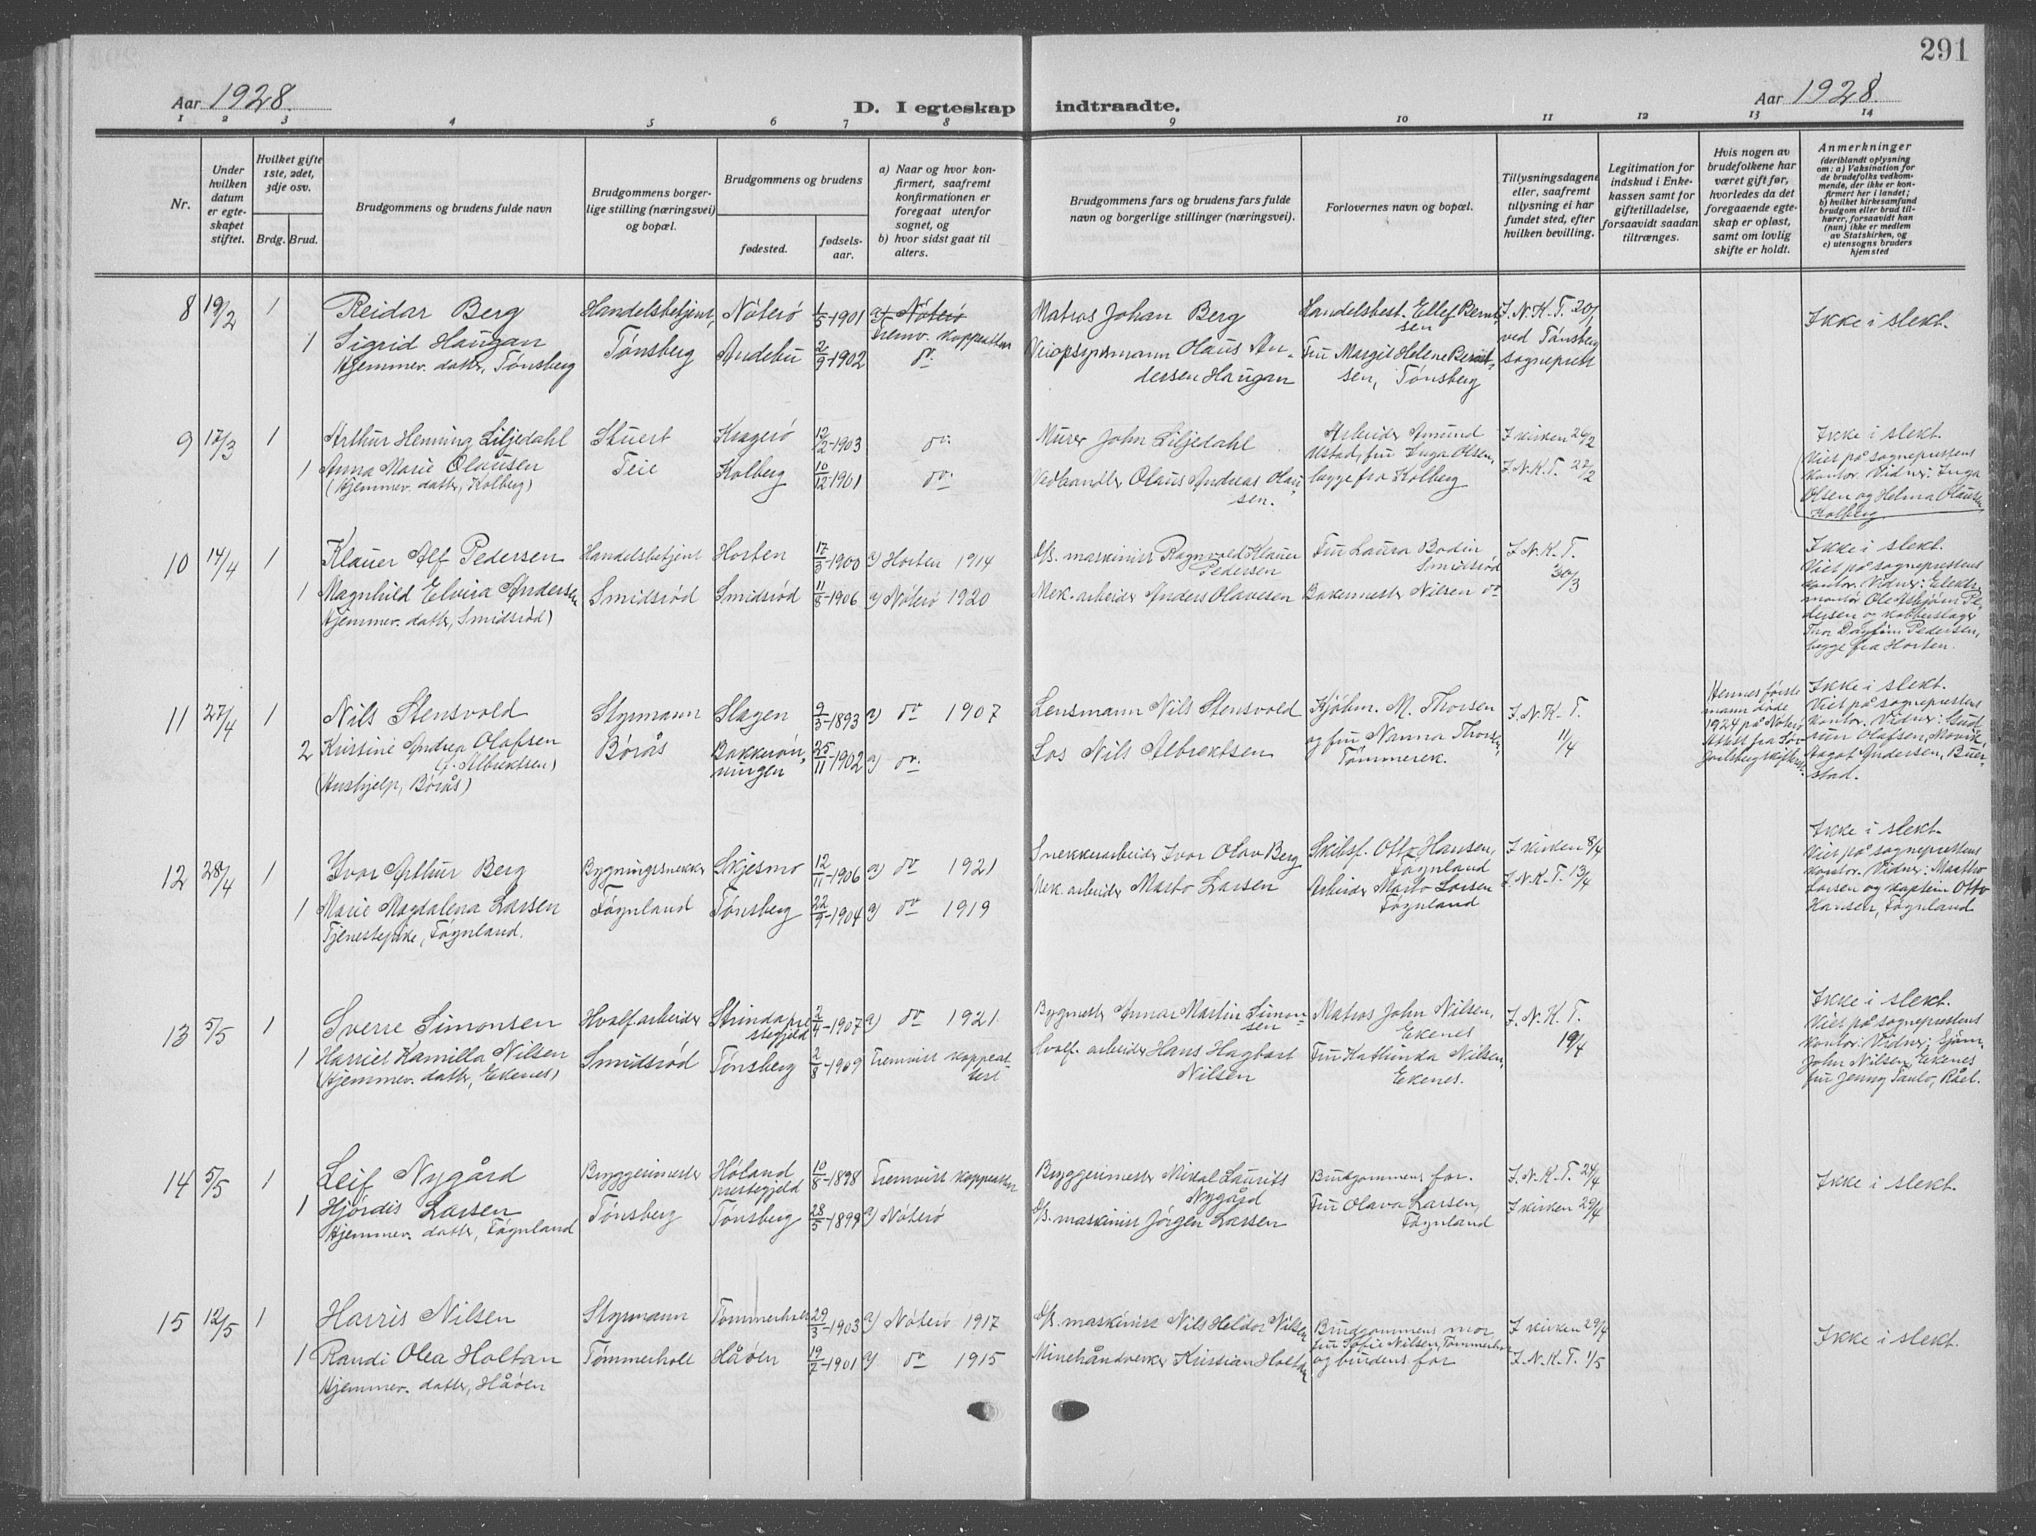 291
Aar 1928.
D. I egteskap indtraadte.
Aar 1928.
1 2 3 4 5 6 7 8 9 10 11 12 13 14
Nr.
Under hvilken datum er egteskapet stiftet.
Hvilket gifte 1ste, 2det, 3dje osv.
Brdg. Brud.
Brudgommens og brudens fulde navn
Brudgommens borgerlige stilling (næringsvei) og bopæl.
Brudgommens og brudens
fødested.
fødselsaar.
a) Naar og hvor konfirmert, saafremt konfirmationen er foregaat utenfor sognet, og
b) hvor sidst gaat til alters.
Brudgommens fars og brudens fars fulde navn og borgerlige stillinger (næringsvei).
Forlovernes navn og bopæl.
Tillysningsdagene eller, saafremt tillysning ei har fundet sted, efter hvilken bevilling.
Legitimation for indskud i Enkekassen samt for giftetilladelse, forsaavidt saadan tiltrænges.
Hvis nogen av brudefolkene har været gift før, hvorledes da det foregaaende egteskap er opløst, samt om lovlig skifte er holdt.
Anmerkninger
(deriblandt oplysning om: a) Vaksination for de brudefolks vedkommende, der ikke er konfirmert her i landet; b) hvilket kirkesamfund brudgom eller brud tilhører, forsaavidt han (hun) ikke er medlem av Statskirken, og c) utensogns bruders hjemsted
8 19/2 1 Reidar Berg Handelsbetjent, Nøterø 1/5-1901 a) Nøterø
Fremv. koppeatter
Matros Johan Berg
Handelsbest. Ellef Berntsen
I. N. K. T. 20/1
ved Tønsberg sogneprest
Ikke i slekt.
1 Sigrid Haugan
Hjemmev. datter, Tønsberg
Tønsberg Andebu 2/9-1902 do.
Veiopsynsmann Olaus Andersen Haugan
Fru Margit Helene Berntsen, Tønsberg
9 17/3 1 Arthur Henning Liljedahl Stuert Kragerø 12/2-1903 do.
Murer John Liljedahl
Arbeider Amund Ulstad, fru Inga Olsen, begge fra Kolberg
I kirken 26/2
I. N. K. T. 27/2
1 Anna Marie Olausen
(Hjemmev. datter, Kolberg)
Teie Kolberg 10/12-1901 do.
Vedhandler Olaus Andreas Olausen.
Ikke i slekt.
Viet på sogneprestens kontor. Vidner: Inga Olsen og Helma Olausen Kolberg
10 14/4 1 Klauer Alf Pedersen Handelsbetjent Horten 17/3-1900 a) Horten 1914
maskinist Ragnvald Klauer Pedersen
Fru Laura Bodin, Smidsrød
I. N. K. T. 30/3
1 Magnhild Elvira Andersen
Hjemmev. datter, Smidsrød)
Smidsrød Smidsrød 11/8-1906 a) Nøterø 1920
Mek. arbeider Anders Olavesen
Bakermester Nilsen do
Ikke i slekt.
Viet på sogneprestens kontor. Vidner: Elektr. montør Ole Asbjørn Pedersen og kobberslager Thor Dagfinn Pedersen, begge fra Horten.
11 27/4 1 Nils Stensvold Styrmann Slagen 9/3-1893 a) do 1907
Lensmann Nils Stensvold
Kjøbm. M. Thorsen og fru Nanna Thorsen, Tømmerek.
I. N. K. T. 11/4
2 Kristine Andrea Olafsen
(f. Albrektsen)
(Hushjelp, Borås)
Børås Bakkerønningen 25/11-1902 a) do.
Los Nils Albrektsen
Hennes første mann døde 1924 på Nøterø. Attest fra
Ikke i slekt.
Viet på sogneprestens kontor. Vidner: Gudrun Olafsen, Aagot Andersen, Buerstad.
12 28/4 1 Ivar Arthur Berg Bygningssnekker Skjesmo 12/11-1906 a) do 1921
Snekkerarbeider Ivar Olav Berg
Skibsf. Otto Hansen, Føynland
I kirken 8/4
I. N. K. T. 13/4
1 Marie Magdalena Larsen
Tjenestepike, Føynland.
Føynland Tønsberg 22/9-1904 a) do 1919
Mek. arbeider Marto Larsen
Arbeider Marto Larsen Føynland
Ikke i slekt.
Viet på sogneprestens kontor. Vidner: Larsen og kaptein Otto Hansen, Føynland
13 5/5 1 Sverre Simonsen Hvalf. arbeider Strinda prestegjeld 2/4-1907 a) do 1921
Bygmester Annar Martin Simonsen
Matros John Nilsen, Ekenes
I. N. K. T. 19/4
1 Harriet Kamilla Nilsen
(Hjemmev. datter, Ekenes)
Smidsrød Tønsberg 2/8-1909 Fremvist koppeattest
Hvalf. arbeider Hans Hagbart Nilsen
Fru Kathinda Nilsen, Ekenes.
Ikke i slekt.
Viet på sogneprestens kontor. Vidner: Sjøm. John Nilsen, Ekenes fru Jenny Paulo, Råel.
14 5/5 1 Leif Nygård Bryggerimester Høland prestegjeld 10/8-1898 Fremvist koppeatter
Bryggerimester Mikal Laurits Nygård
Brudgommens far.
I. N. K. T. 24/4
1 Hjørdis Larsen
Hjemmev. datter, Føynland
Tønsberg Tønsberg 28/5-1899 a) Nøterø
maskinist Jørgen Larsen
Fru Olava Larsen, Føynland
I kirken 29/4
Ikke i slekt.
15 12/5 1 Harris Nilsen Styrmann Tømmerholt 29/3-1903 a) Nøterø 1917
maskinist Nils Heldor Nilsen
Brudgommens mor fru Sofie Nilsen, Tømmerholt og brudens far
I kirken 29/4
I. N. K. T. 1/5
1 Randi Olea Holtan
Hjemmev. datter, Håøen
Tømmerholt Håøen 19/2-1901 a) do 1915
Minehåndverker Kristian Holtan
Ikke i slekt.